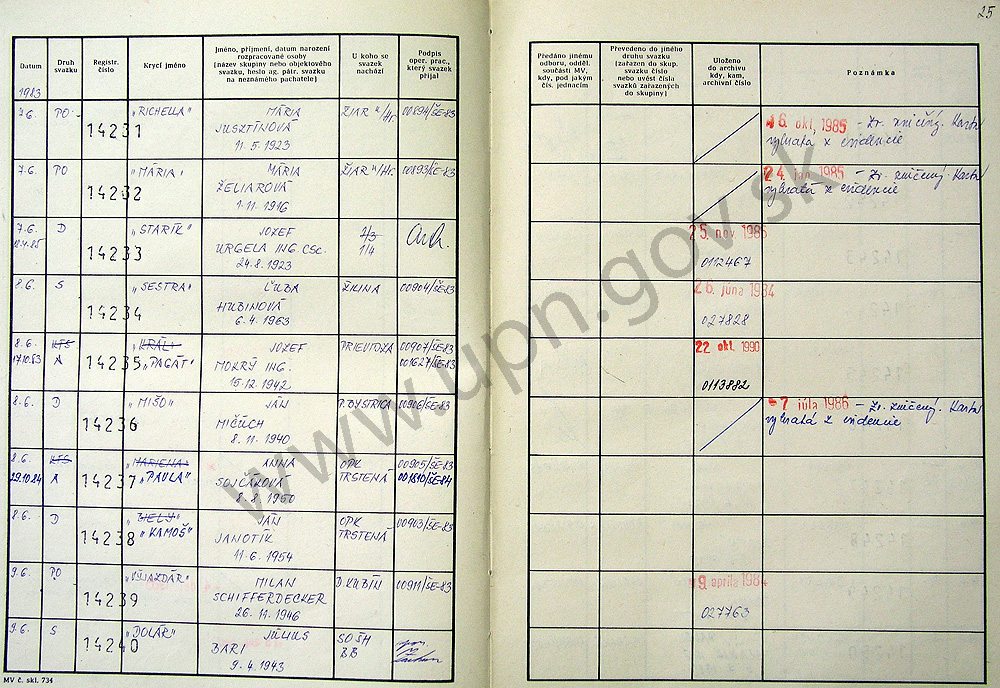 25
Datum
Druh svazku
Registr. číslo
Krycí jméno
Jméno, příjmení, datum narození
rozpracované osoby
(název skupiny nebo objektového
svazku, heslo ag. pátr. svazku
na neznámého pachatele)
U koho se
svazek
nachází
Podpis
oper. prac.,
který svazek
přijal
Předáno jinému
odboru, odděl.
součásti MV,
kdy, pod jakým
čís. jednacím
Převedeno do jiného
druhu svazku
(zařazen do skup.
svazku číslo
nebo uvést čísla
svazků zařazených
do skupiny)
Uloženo
do archivu
kdy, kam,
archivní číslo
Poznámka
1983
7.6. PO 14231 "RICHELLA" MÁRIA
JUSZTÍNOVÁ
11.5.1923
ŽIAR n/Hr. 00894/ŠE-83
6. okt. 1985 - Zv. zničený. Karta
vybratá z evidencie
7.6. PO 14232 "MÁRIA" MÁRIA
ŽELIAROVÁ
1.11.1916
ŽIAR n/Hr. 00893/ŠE-83
24. jan 1985 - Zv. zničený. Karta
vybratá z evidencie
7.6. D 14233 "STARÍK" JOZEF
URGELA ING. CSc.
24.8.1923
2/3
1/4
5. nov 1986
0112467
8.6. S 14234 "SESTRA" ĽUBA
HUBINOVÁ
6.4.1963
ŽILINA 00904/ŠE-83
26. júna 1984
027828
8.6. KTS 14235 "KRÁL" JOZEF
17.10.83 A "PAGÁT" MOKRÝ ING.
15.12.1942
PRIEVIDZA 00907/ŠE-83
001627/ŠE-83
22 okt. 1990
0113882
8.6. D 14236 "MIŠO" JÁN
MIČÚCH
8.11.1940
P. BYSTRICA 00906/ŠE-83
7 júla 1986 - Zv. zničený. Karta
vybratá z evidencie
8.6. KTS 14237 "MARIENA" ANNA
29.10.84 A "PAVLA" SOJČÁKOVÁ
8.8.1950
OPK
TRSTENÁ
00905/ŠE-83
001810/ŠE-84
8.6. D 14238 "BIELY" JÁN
"KAMOŠ" JANOTÍK
11.6.1954
OPK
TRSTENÁ
00903/ŠE-83
9.6. PO 14239 MILAN
SCHIFFERDECKER
26.11.1946
D. KUBÍN 00911/ŠE-83
9. apríla 1984
027763
9.6. S 14240 "DOLÁR" JÚLIUS
BARI
9.4.1943
SO ŠH
BB
MV č. skl. 734
www.upn.gov.sk